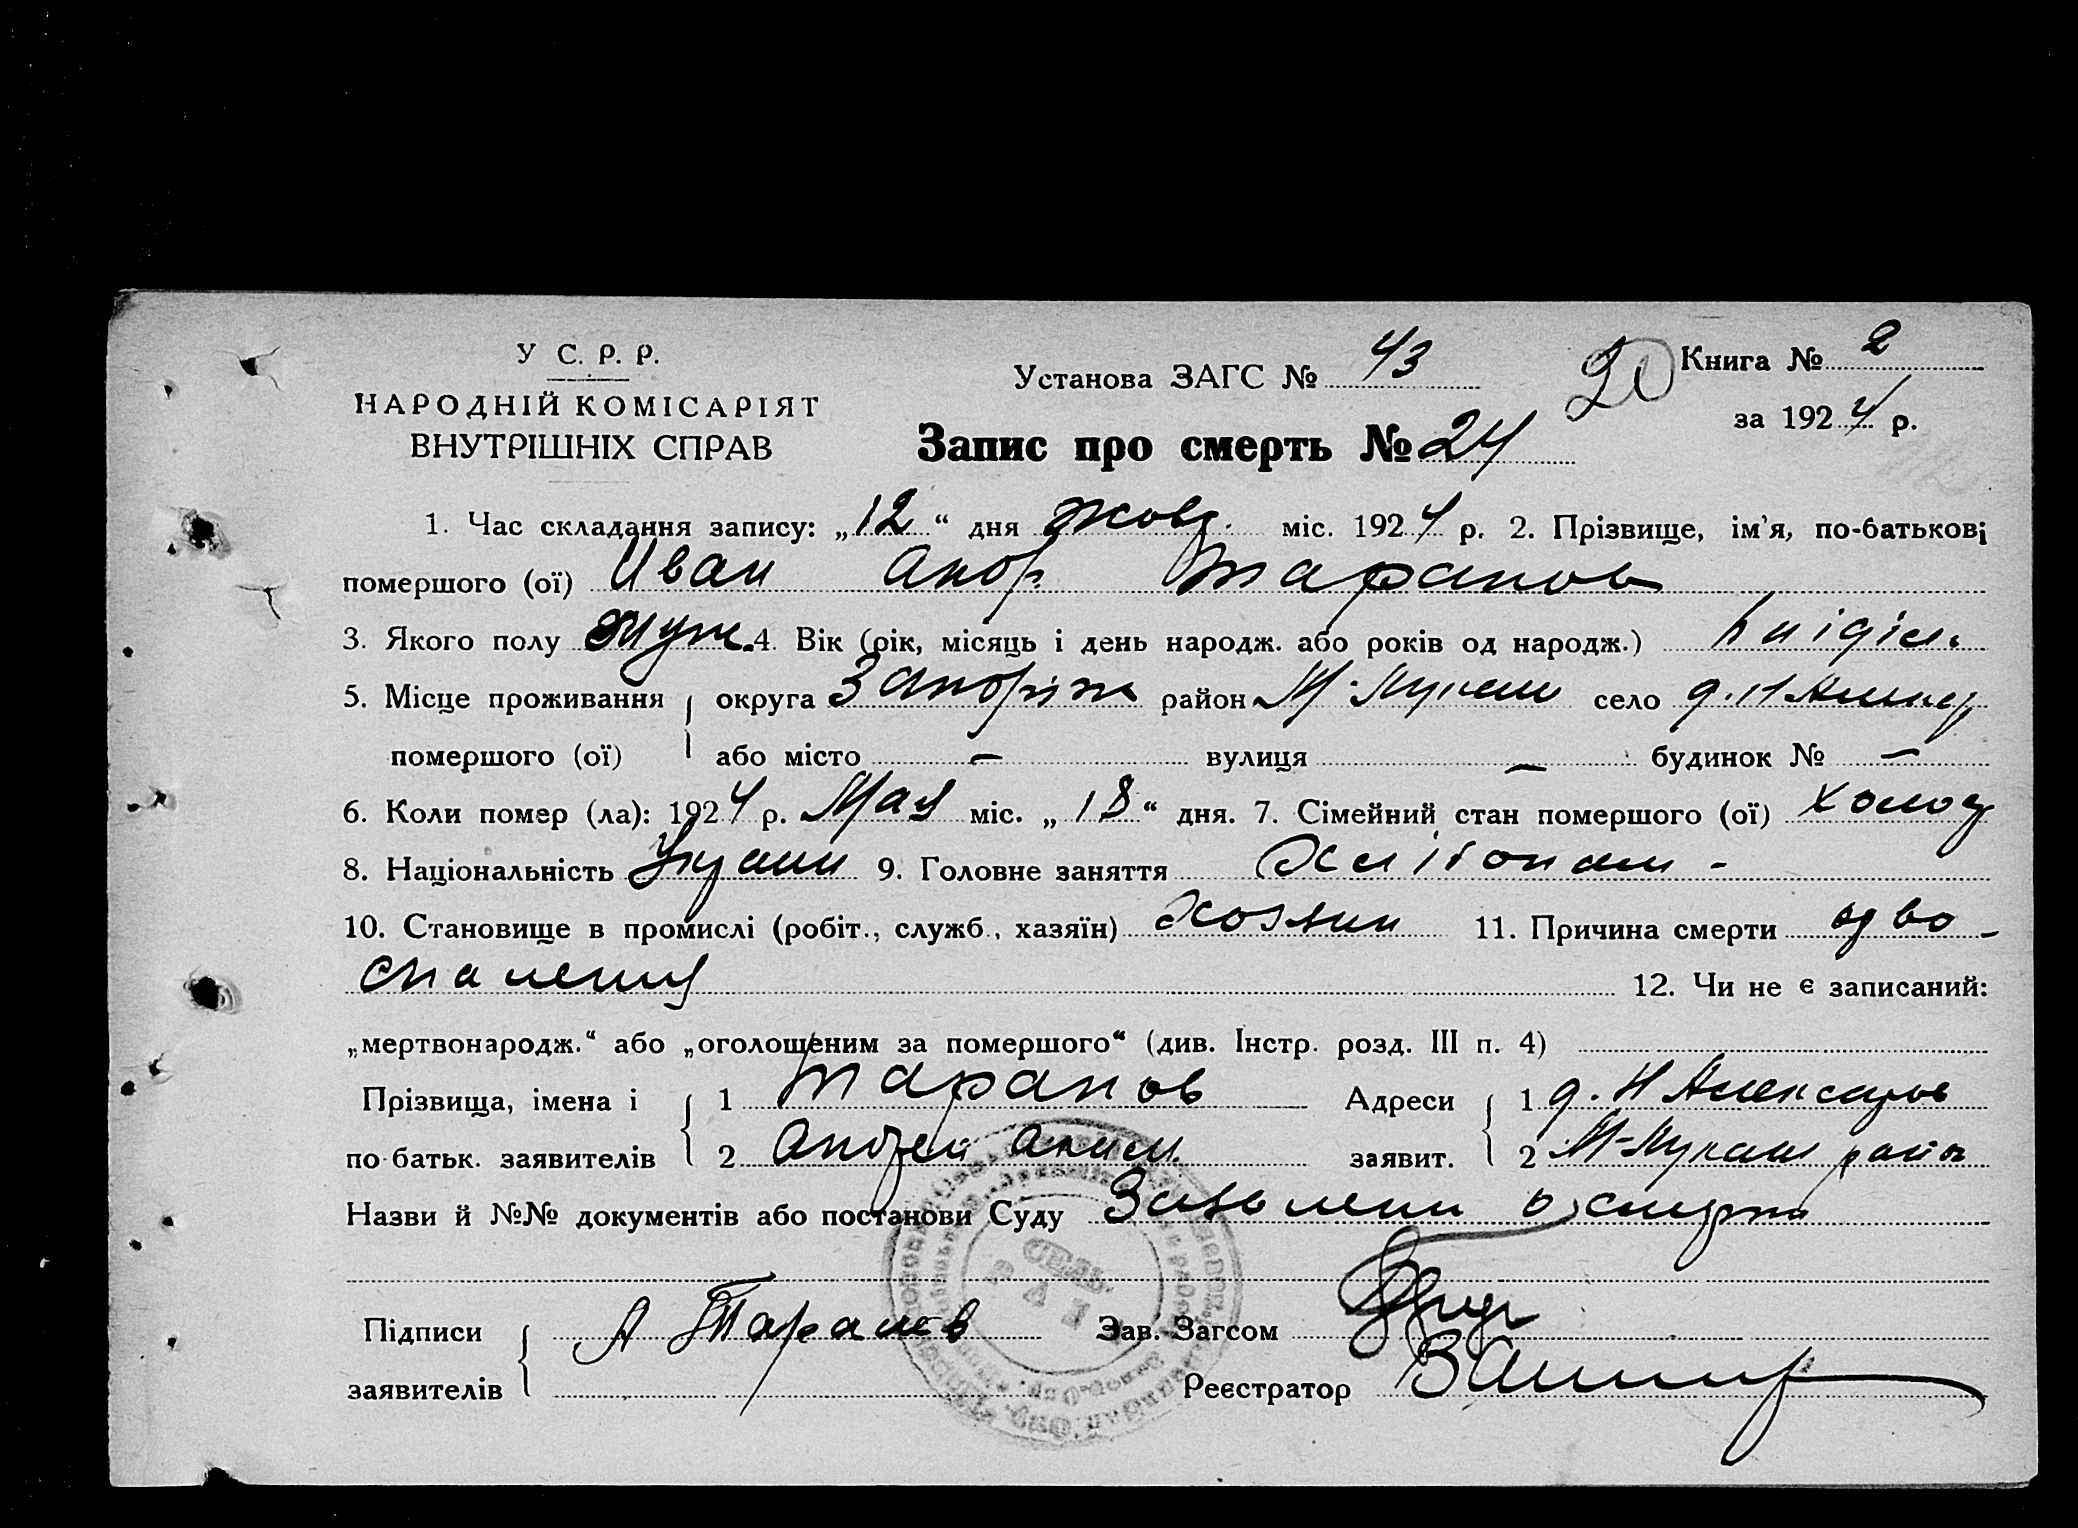 У С. Р. Р.
НАРОДНІЙ КОМІСАРІЯТ
ВНУТРІШНІХ СПРАВ
Установа ЗАГС № 43
20
Книга № 2
за 1924 р.
Запис про смерть № 24
1. Час складання запису: „12“ дня жовт. міс. 1924 р. 2. Прізвище, ім'я, по-батькові
помершого (ої) Иван Андр. Таранов
3. Якого полу муж. 4. Вік (рік, місяць і день народж. або років од народж.)
5. Місце проживання округа Запоріж район М-Лукаш село д. Н Александр
помершого (ої) або місто — вулиця — будинок № —
6. Коли помер (ла): 1924 р. Мая міс. „18“ дня. 7. Сімейний стан помершого (ої) холост
8. Національність Украин 9. Головне заняття Хлібопаш -
10. Становище в промислі (робіт., служб., хазяїн) Хозяин 11. Причина смерти од во-
спаления 12. Чи не є записаний:
„мертвонародж.“ або „оголошеним за помершого“ (див. Інстр. розд. III п. 4)
Прізвища, імена і 1 Таранов Адреси 1 д. Н Александров
по-батьк. заявителів 2 Андрей Аким. заявит. 2 М-Лукаш район
Назви й №№ документів або постанови Суду Заявлени о смерти
Підписи А Таранов Зав. Загсом
заявителів Реєстратор